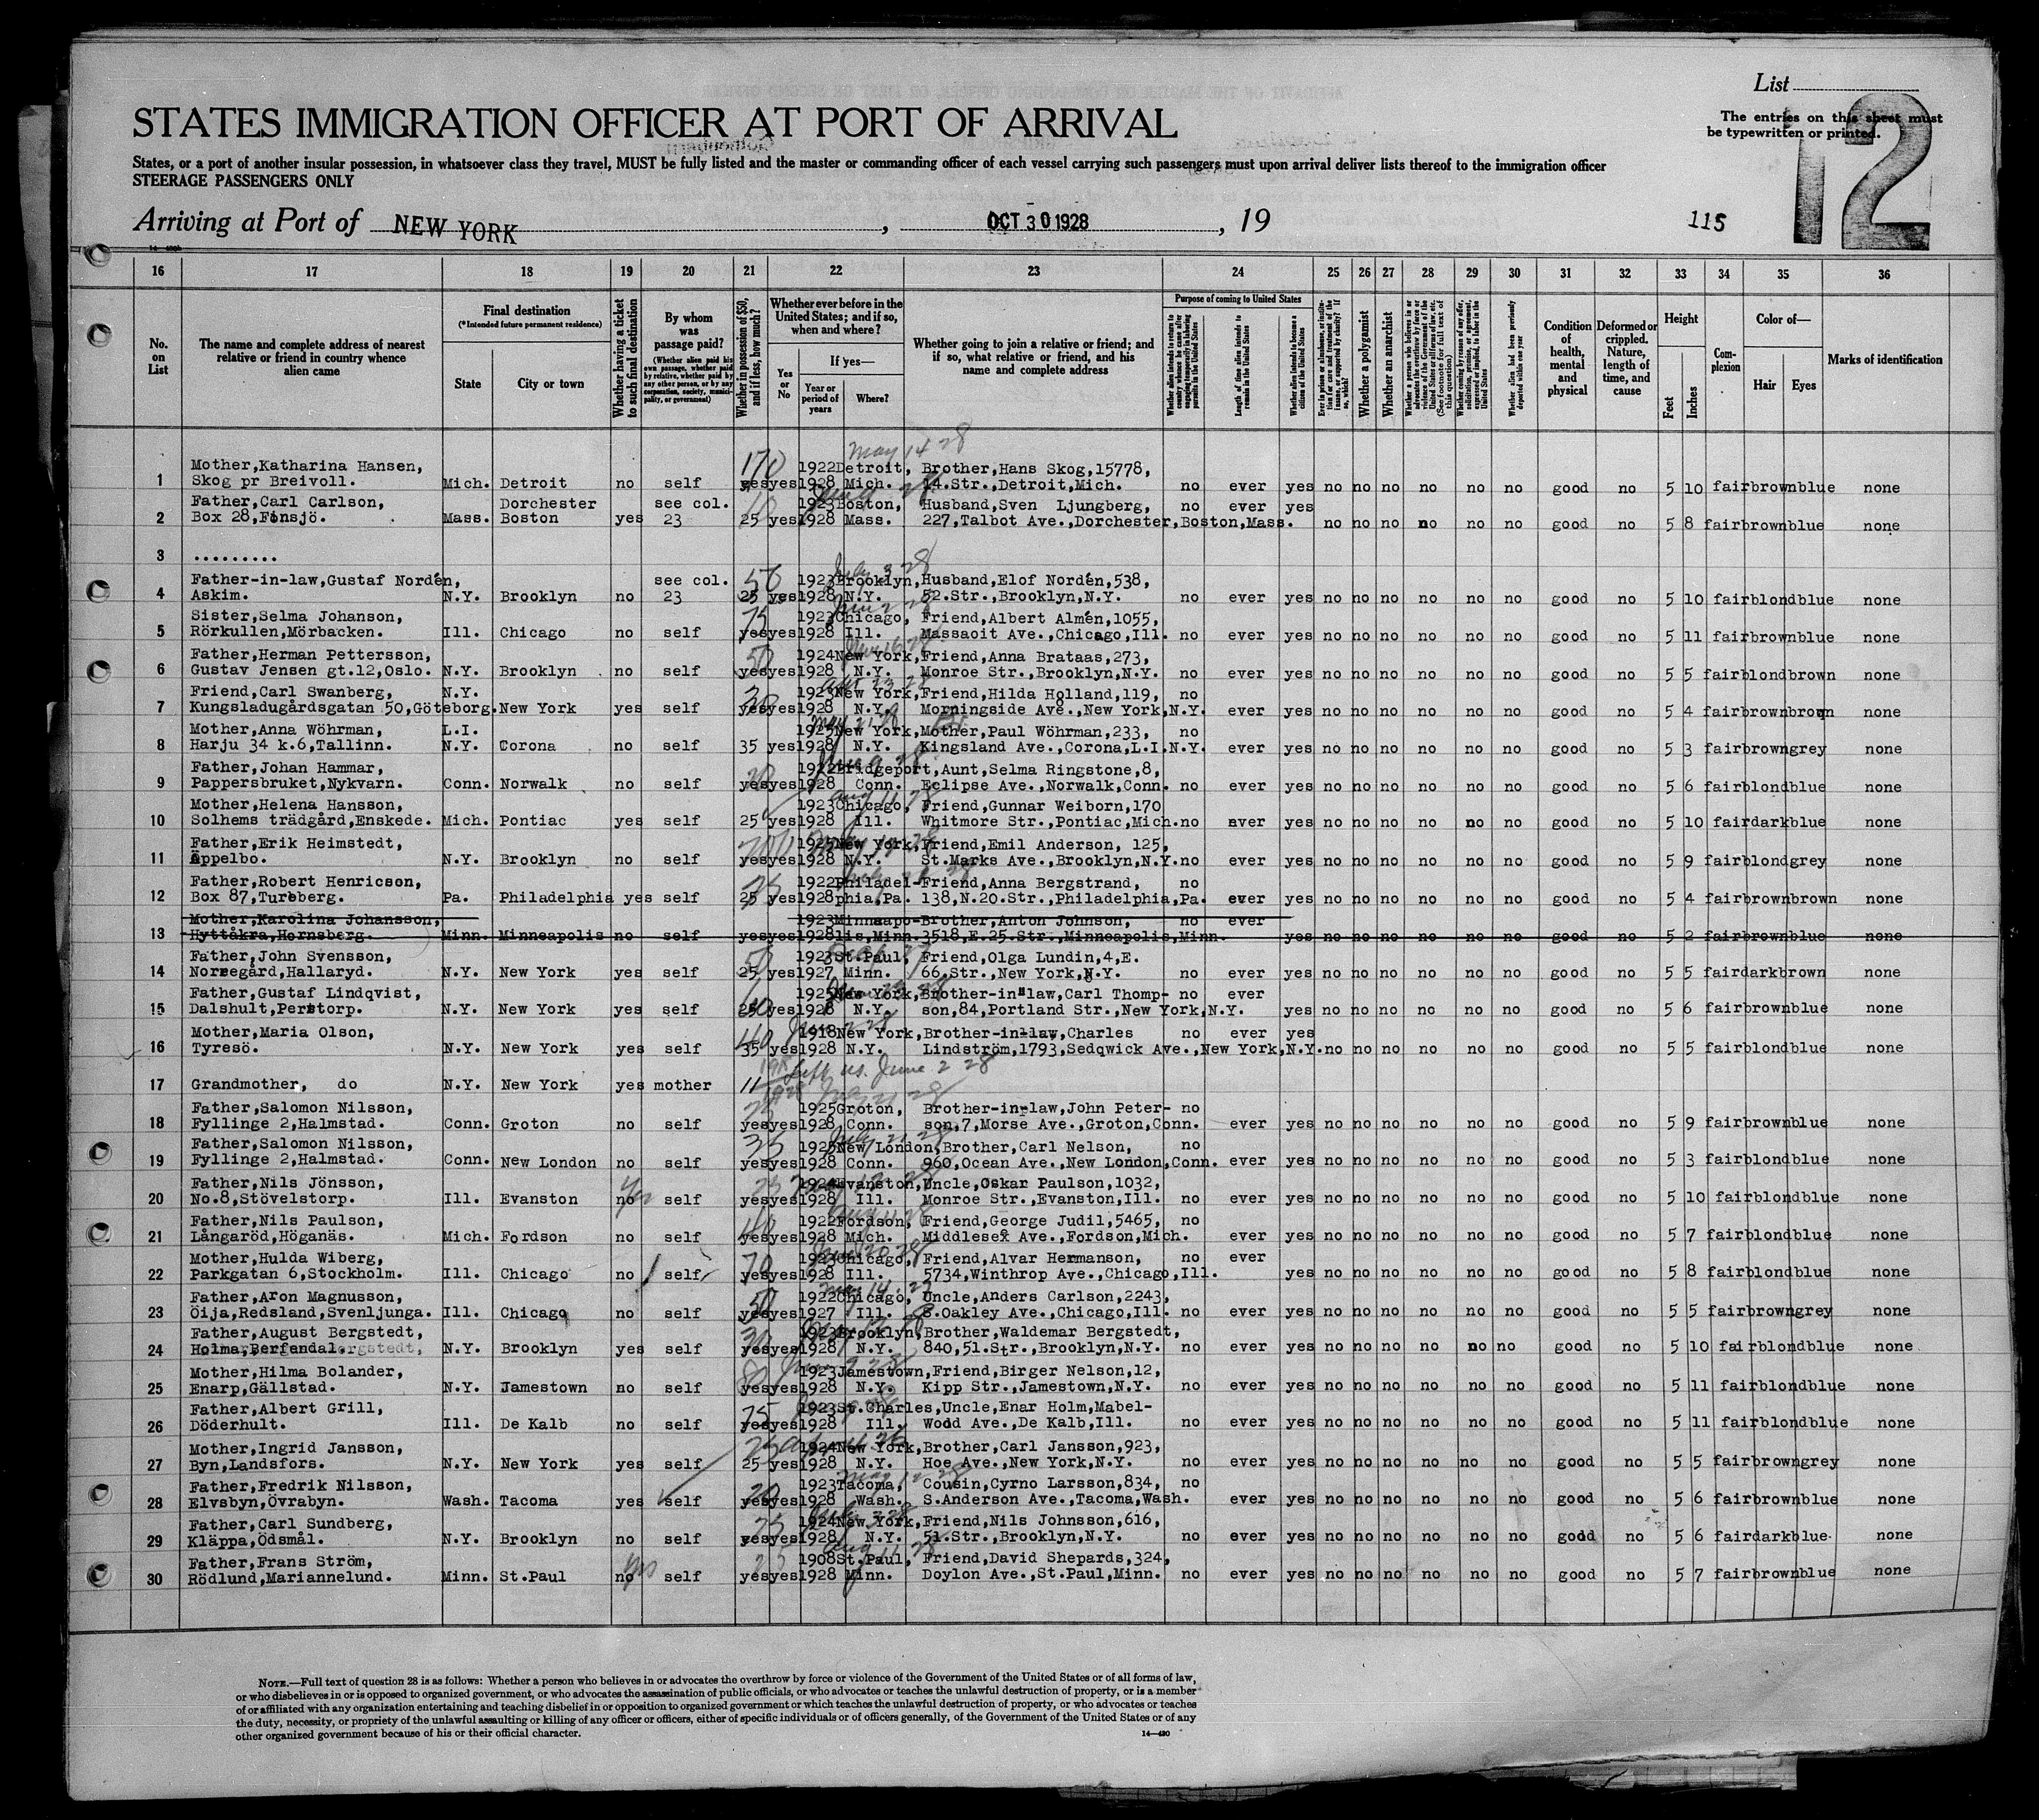 List
The entries on this sheet must
be typewritten or printed.
12
STATES IMMIGRATION OFFICER AT PORT OF ARRIVAL
States, or a port of another insular possession, in whatsoever class they travel, MUST be fully listed and the master or commanding officer of each vessel carrying such passengers must upon arrival deliver lists thereof to the immigration officer
STEERAGE PASSENGERS ONLY
Arriving at Port of NEW YORK, OCT 30 1928, 19
115
16 17 18 19 20 21 22 23 24 25 26 27 28 29 30 31 32 33 34 35 36
No. on List
The name and complete address of nearest relative or friend in country whence alien came
Final destination
(*Intended future permanent residence)
State
City or town
Whether having a ticket to such final destination
By whom was passage paid?
(Whether alien paid his own passage, whether paid by relative, whether paid by any other person, or by any corporation, society, municipality, or government)
Whether in possession of $50, and if less, how much?
Whether ever before in the United States; and if so, when and where?
Yes or No
If yes—
Year or period of years
Where?
Whether going to join a relative or friend; and if so, what relative or friend, and his name and complete address
Purpose of coming to United States
Length of time alien intends to remain in the United States
Whether alien intends to become a citizen of the United States
Whether a polygamist
Whether an anarchist
Condition of health, mental and physical
Deformed or crippled. Nature, length of time, and cause
Height
Feet
Inches
Complexion
Color of—
Hair
Eyes
Marks of identification
May 14 28
Mother,Katharina Hansen, 170 1922 Detroit, Brother,Hans Skog,15778,
1 Skog pr Breivoll. Mich. Detroit no self yes yes 1928 Mich. 14.Str.,Detroit,Mich. no ever yes no no no no no no good no 5 10 fair brown blue none
Father,Carl Carlson, Dorchester see col. 1923 Boston, Husband,Sven Ljungberg, no ever yes
2 Box 28,Finsjö. Mass. Boston yes 23 25 yes 1928 Mass. 227,Talbot Ave.,Dorchester,Boston,Mass. no no no no no no good no 5 8 fair brown blue none
3 .........
Father-in-law,Gustaf Nordén, see col. 50 1923 Brooklyn, Husband,Elof Nordén,538,
4 Askim. N.Y. Brooklyn no 23 25 yes 1928 N.Y. 52.Str.,Brooklyn,N.Y. no ever yes no no no no no no good no 5 10 fair blond blue none
Sister,Selma Johanson, 75 1923 Chicago, Friend,Albert Almén,1055,
5 Rörkullen,Mörbacken. Ill. Chicago no self yes yes 1928 Ill. Massaoit Ave.,Chicago,Ill. no ever yes no no no no no no good no 5 11 fair brown blue none
Father,Herman Pettersson, 50 1924 New York, Friend,Anna Brataas,273,
6 Gustav Jensen gt.12,Oslo. N.Y. Brooklyn no self yes yes 1928 N.Y. Monroe Str.,Brooklyn,N.Y. no ever yes no no no no no no good no 5 5 fair blond brown none
Friend,Carl Swanberg, N.Y. 1923 New York, Friend,Hilda Holland,119, no
7 Kungsladugårdsgatan 50,Göteborg. New York yes self yes yes 1928 N.Y. Morningside Ave.,New York,N.Y. ever yes no no no no no no good no 5 4 fair brown brown none
Mother,Anna Wöhrman, L.I. 1925 New York, Mother,Paul Wöhrman,233, no
8 Harju 34 k.6,Tallinn. N.Y. Corona no self 35 yes 1928 N.Y. Kingsland Ave.,Corona,L.I.N.Y. ever yes no no no no no no good no 5 3 fair brown grey none
Father,Johan Hammar, 1922 Bridgeport, Aunt,Selma Ringstone,8,
9 Pappersbruket,Nykvarn. Conn. Norwalk no self yes yes 1928 Conn. Eclipse Ave.,Norwalk,Conn. no ever yes no no no no no no good no 5 6 fair blond blue none
Mother,Helena Hansson, 1923 Chicago, Friend,Gunnar Weiborn,170
10 Solhems trädgård,Enskede. Mich. Pontiac yes self 25 yes 1928 Ill. Whitmore Str.,Pontiac,Mich. no ever yes no no no no no no good no 5 10 fair dark blue none
Father,Erik Heimstedt, 1925 New York, Friend,Emil Anderson, 125,
11 Äppelbo. N.Y. Brooklyn no self yes yes 1928 N.Y. St.Marks Ave.,Brooklyn,N.Y. no ever yes no no no no no no good no 5 9 fair blond grey none
Father,Robert Henricson, 1922 Philadel- Friend,Anna Bergstrand, no
12 Box 87,Tureberg. Pa. Philadelphia yes self 25 yes 1928 phia,Pa. 138,N.20.Str.,Philadelphia,Pa. ever yes no no no no no no good no 5 4 fair brown brown none
Mother,Karolina Johansson, 1923 Minneapo- Brother,Anton Johnson, no ever
13 Hyttåkra,Hornsberg. Minn. Minneapolis no self yes yes 1928 lis,Minn. 3518,E.25.Str.,Minneapolis,Minn. yes no no no no no no good no 5 2 fair brown blue none
Father,John Svensson, 50 1923 St.Paul, Friend,Olga Lundin,4,E.
14 Norregård,Hallaryd. N.Y. New York yes self 25 yes 1927 Minn. 66.Str.,New York,N.Y. no ever yes no no no no no no good no 5 5 fair dark brown none
Father,Gustaf Lindqvist, 1925 New York, Brother-in-law,Carl Thomp- no ever
15 Dalshult,Perstorp. N.Y. New York yes self yes 1928 N.Y. son,84,Portland Str.,New York,N.Y. yes no no no no no no good no 5 6 fair brown blue none
Mother,Maria Olson, 40 1918 New York, Brother-in-law,Charles no ever yes
16 Tyresö. N.Y. New York yes self 35 yes 1928 N.Y. Lindström,1793,Sedqwick Ave.,New York,N.Y. no no no no no no good no 5 5 fair blond blue none
left us. June 2 28
17 Grandmother, do N.Y. New York yes mother 11
Father,Salomon Nilsson, 1925 Groton, Brother-in-law,John Peter- no
18 Fyllinge 2,Halmstad. Conn. Groton no self yes yes 1928 Conn. son,7,Morse Ave.,Groton,Conn. ever yes no no no no no no good no 5 9 fair brown blue none
Father,Salomon Nilsson, 35 1925 New London, Brother,Carl Nelson, no
19 Fyllinge 2,Halmstad. Conn. New London no self yes yes 1928 Conn. 960,Ocean Ave.,New London,Conn. ever yes no no no no no no good no 5 3 fair blond blue none
Father,Nils Jönsson, yes 1924 Evanston, Uncle,Oskar Paulson,1032,
20 No.8,Stövelstorp. Ill. Evanston no self yes yes 1928 Ill. Monroe Str.,Evanston,Ill. no ever yes no no no no no no good no 5 10 fair blond blue none
Father,Nils Paulson, 40 1922 Fordson, Friend,George Judil,5465, no
21 Långaröd,Höganäs. Mich. Fordson no self yes yes 1928 Mich. Middlesex Ave.,Fordson,Mich. ever yes no no no no no no good no 5 7 fair blond blue none
Mother,Hulda Wiberg, 70 1923 Chicago, Friend,Alvar Hermanson, no ever
22 Parkgatan 6,Stockholm. Ill. Chicago no self yes yes 1928 Ill. 5734,Winthrop Ave.,Chicago,Ill. yes no no no no no no good no 5 8 fair blond blue none
Father,Aron Magnusson, 50 1922 Chicago, Uncle,Anders Carlson,2243,
23 Öija,Redsland,Svenljunga. Ill. Chicago no self yes yes 1927 Ill. S.Oakley Ave.,Chicago,Ill. no ever yes no no no no no no good no 5 5 fair brown grey none
Father,August Bergstedt, 1923 Brooklyn, Brother,Waldemar Bergstedt,
24 Holma,Berfendal. N.Y. Brooklyn yes self yes yes 1928 N.Y. 840,51.Str.,Brooklyn,N.Y. no ever yes no no no no no no good no 5 10 fair blond blue none
Mother,Hilma Bolander, 80 1923 Jamestown, Friend,Birger Nelson,12,
25 Enarp,Gällstad. N.Y. Jamestown no self yes yes 1928 N.Y. Kipp Str.,Jamestown,N.Y. no ever yes no no no no no no good no 5 11 fair blond blue none
Father,Albert Grill, 75 1923 St.Charles, Uncle,Enar Holm,Mabel-
26 Döderhult. Ill. De Kalb no self yes yes 1928 Ill. Wodd Ave.,De Kalb,Ill. no ever yes no no no no no no good no 5 11 fair blond blue none
Mother,Ingrid Jansson, 1924 New York, Brother,Carl Jansson,923,
27 Byn,Landsfors. N.Y. New York yes self 25 yes 1928 N.Y. Hoe Ave.,New York,N.Y. no ever yes no no no no no no good no 5 5 fair brown grey none
Father,Fredrik Nilsson, 1923 Tacoma, Cousin,Cyrno Larsson,834, no
28 Elvsbyn,Övrabyn. Wash. Tacoma yes self yes yes 1928 Wash. S.Anderson Ave.,Tacoma,Wash. ever yes no no no no no no good no 5 6 fair brown blue none
Father,Carl Sundberg, 1924 New York, Friend,Nils Johnsson,616,
29 Kläppa,Ödsmål. N.Y. Brooklyn no self yes yes 1928 N.Y. 51.Str.,Brooklyn,N.Y. no ever yes no no no no no no good no 5 6 fair dark blue none
Father,Frans Ström, yes 25 1908 St.Paul, Friend,David Shepards,324,
30 Rödlund,Mariannelund. Minn. St.Paul no self yes yes 1928 Minn. Doylon Ave.,St.Paul,Minn. no ever yes no no no no no no good no 5 7 fair brown blue none
NOTE.—Full text of question 28 is as follows: Whether a person who believes in or advocates the overthrow by force or violence of the Government of the United States or of all forms of law,
or who disbelieves in or is opposed to organized government, or who advocates the assassination of public officials, or who advocates or teaches the unlawful destruction of property, or is a member
of or affiliated with any organization entertaining and teaching disbelief in or opposition to organized government or which teaches the unlawful destruction of property, or who advocates or teaches
the duty, necessity, or propriety of the unlawful assaulting or killing of any officer or officers, either of specific individuals or of officers generally, of the Government of the United States or of any
other organized government because of his or their official character.
14—420